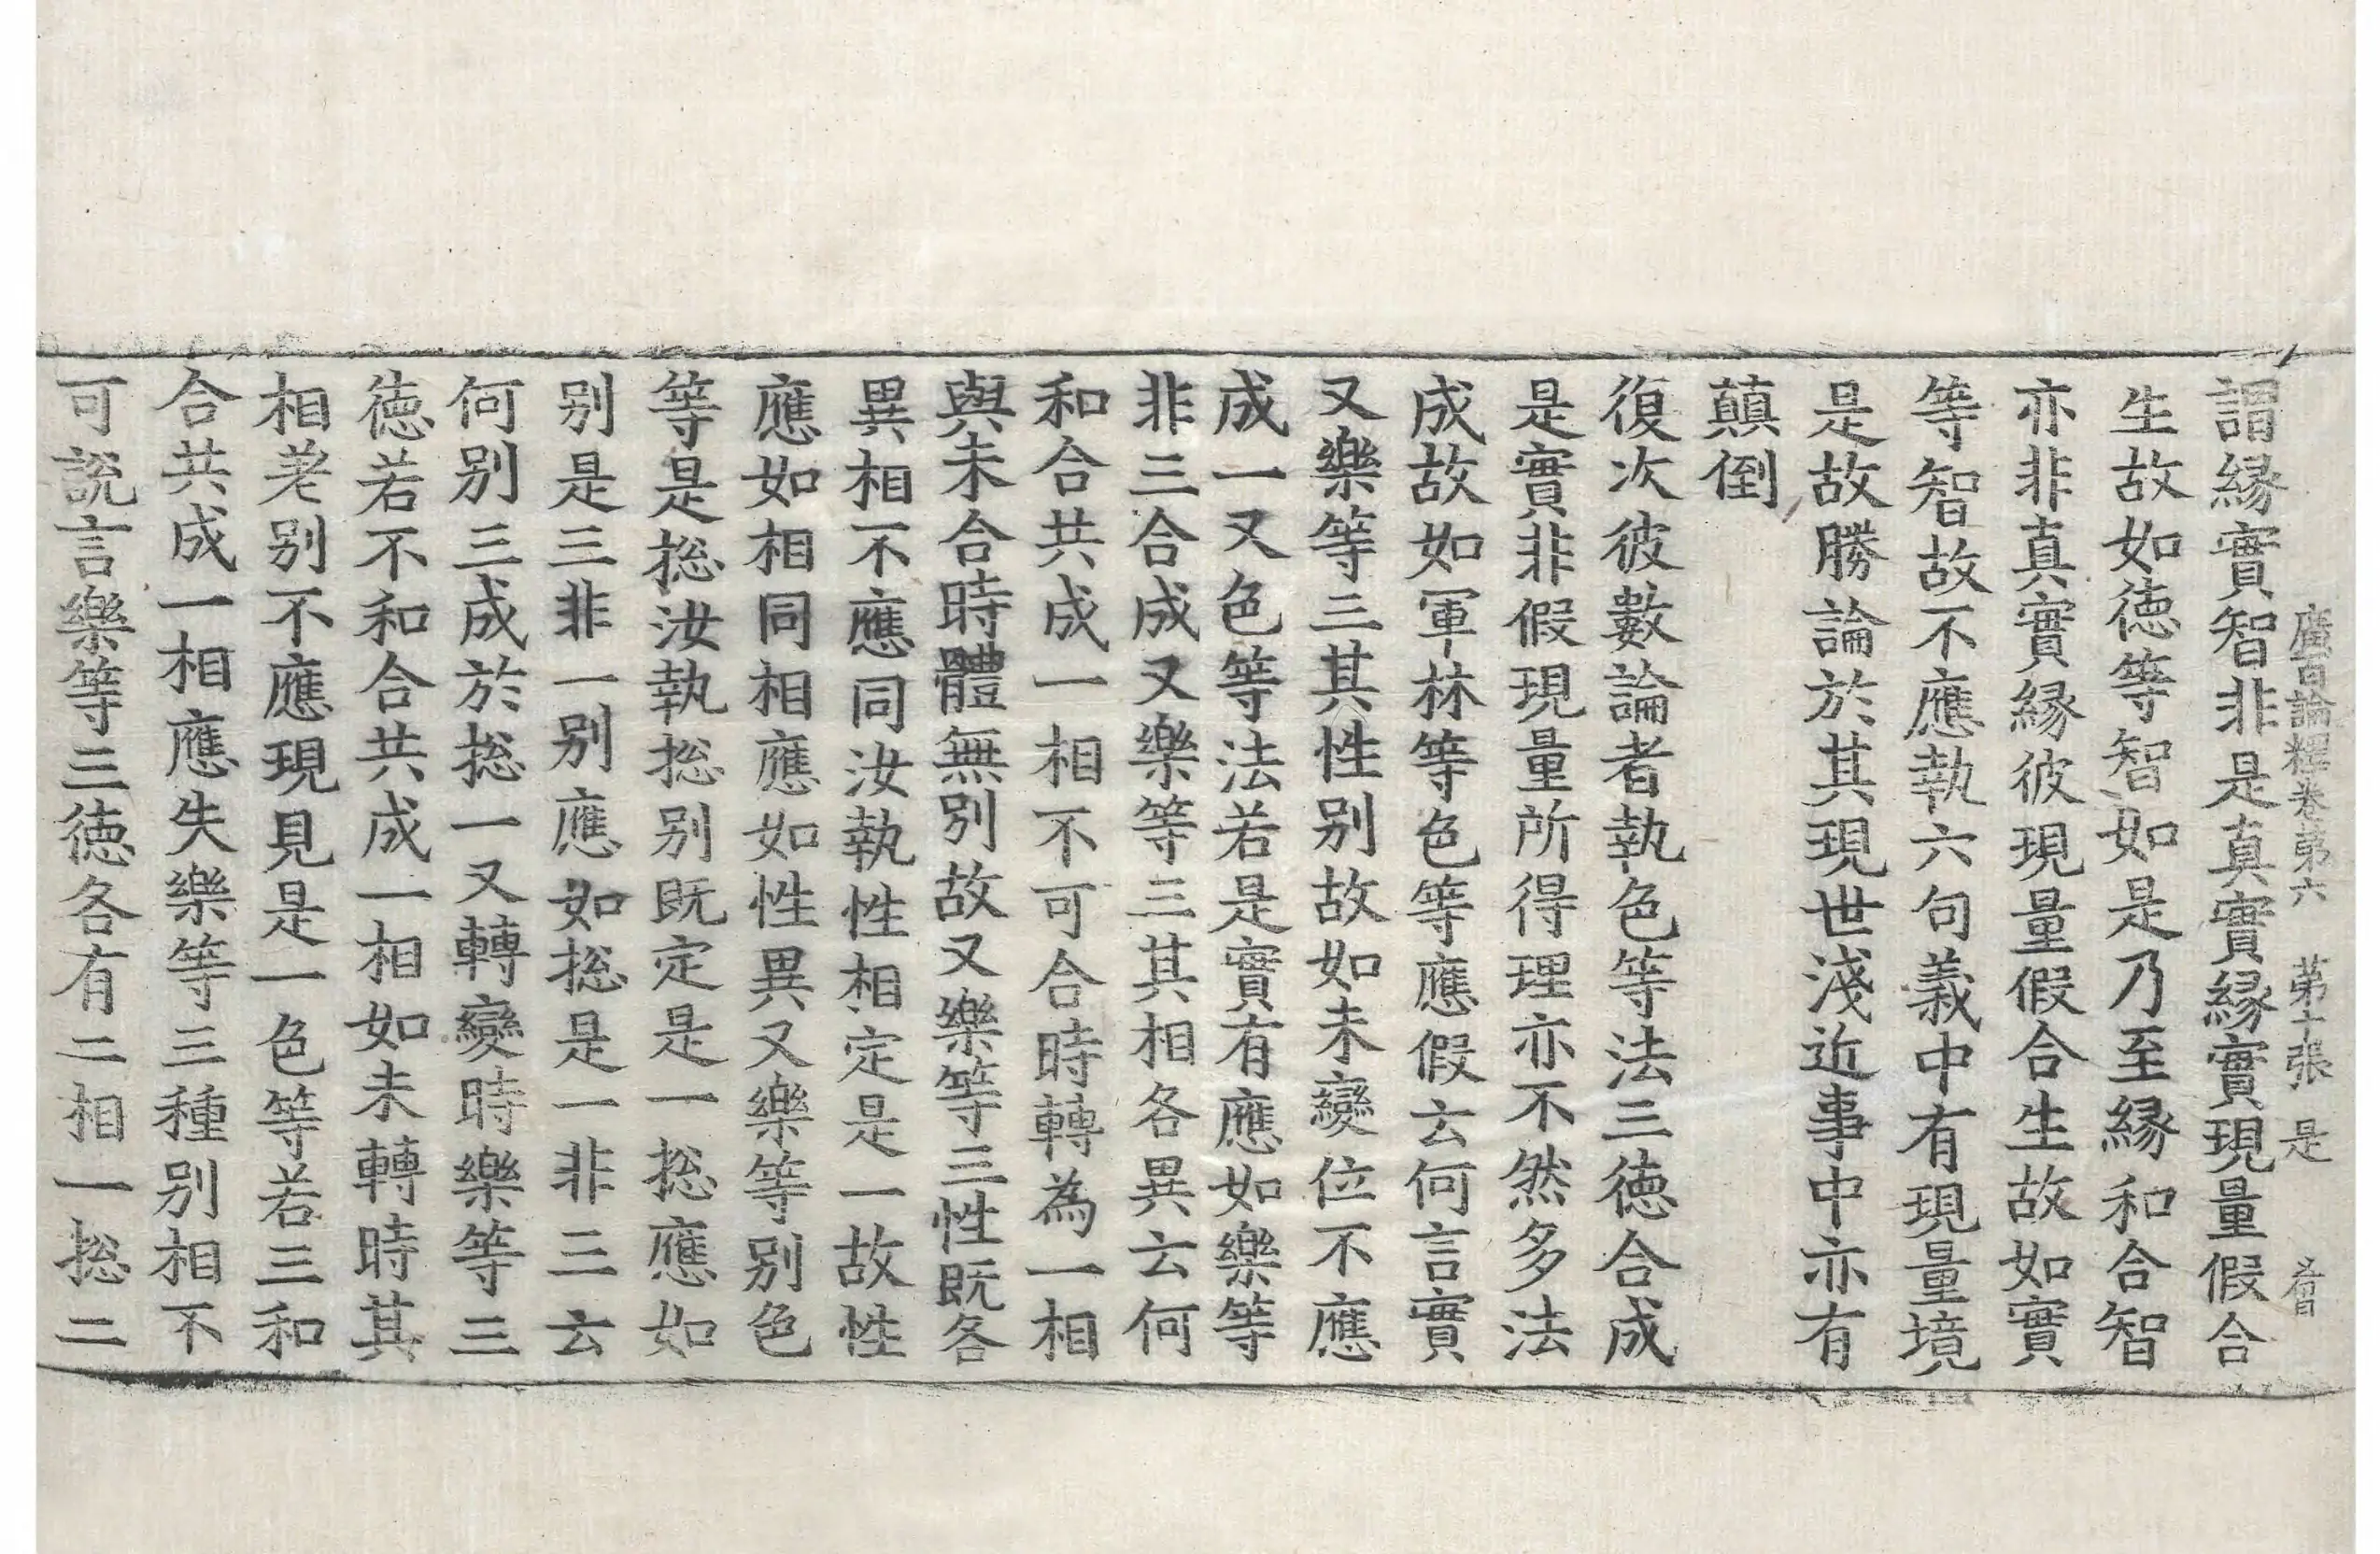 廣百論釋卷第六　第十張　是
謂縁實智非是真實縁實現量假合
生故如徳等智如是乃至縁和合智
亦非真實縁彼現量假合生故如實
等智故不應執六句義中有現量境
是故勝論於其現世淺近事中亦有
顛倒
復次彼數論者執色等法三徳合成
是實非假現量所得理亦不然多法
成故如軍林等色等應假云何言實
又樂等三其性別故如未變位不應
成一又色等法若是實有應如樂等
非三合成又樂等三其相各異云何
和合共成一相不可合時轉為一相
與未合時體無別故又樂等三性既各
異相不應同汝執性相定是一故性
應如相同相應如性異又樂等別色
等是捴汝執捴別既定是一捴應如
別是三非一別應如捴是一非三云
何別三成於捴一又轉變時樂等三
徳若不和合共成一相如未轉時其
相差別不應現見是一色等若三和
合共成一相應失樂等三種別相不
可說言樂等三徳各有二相一捴二